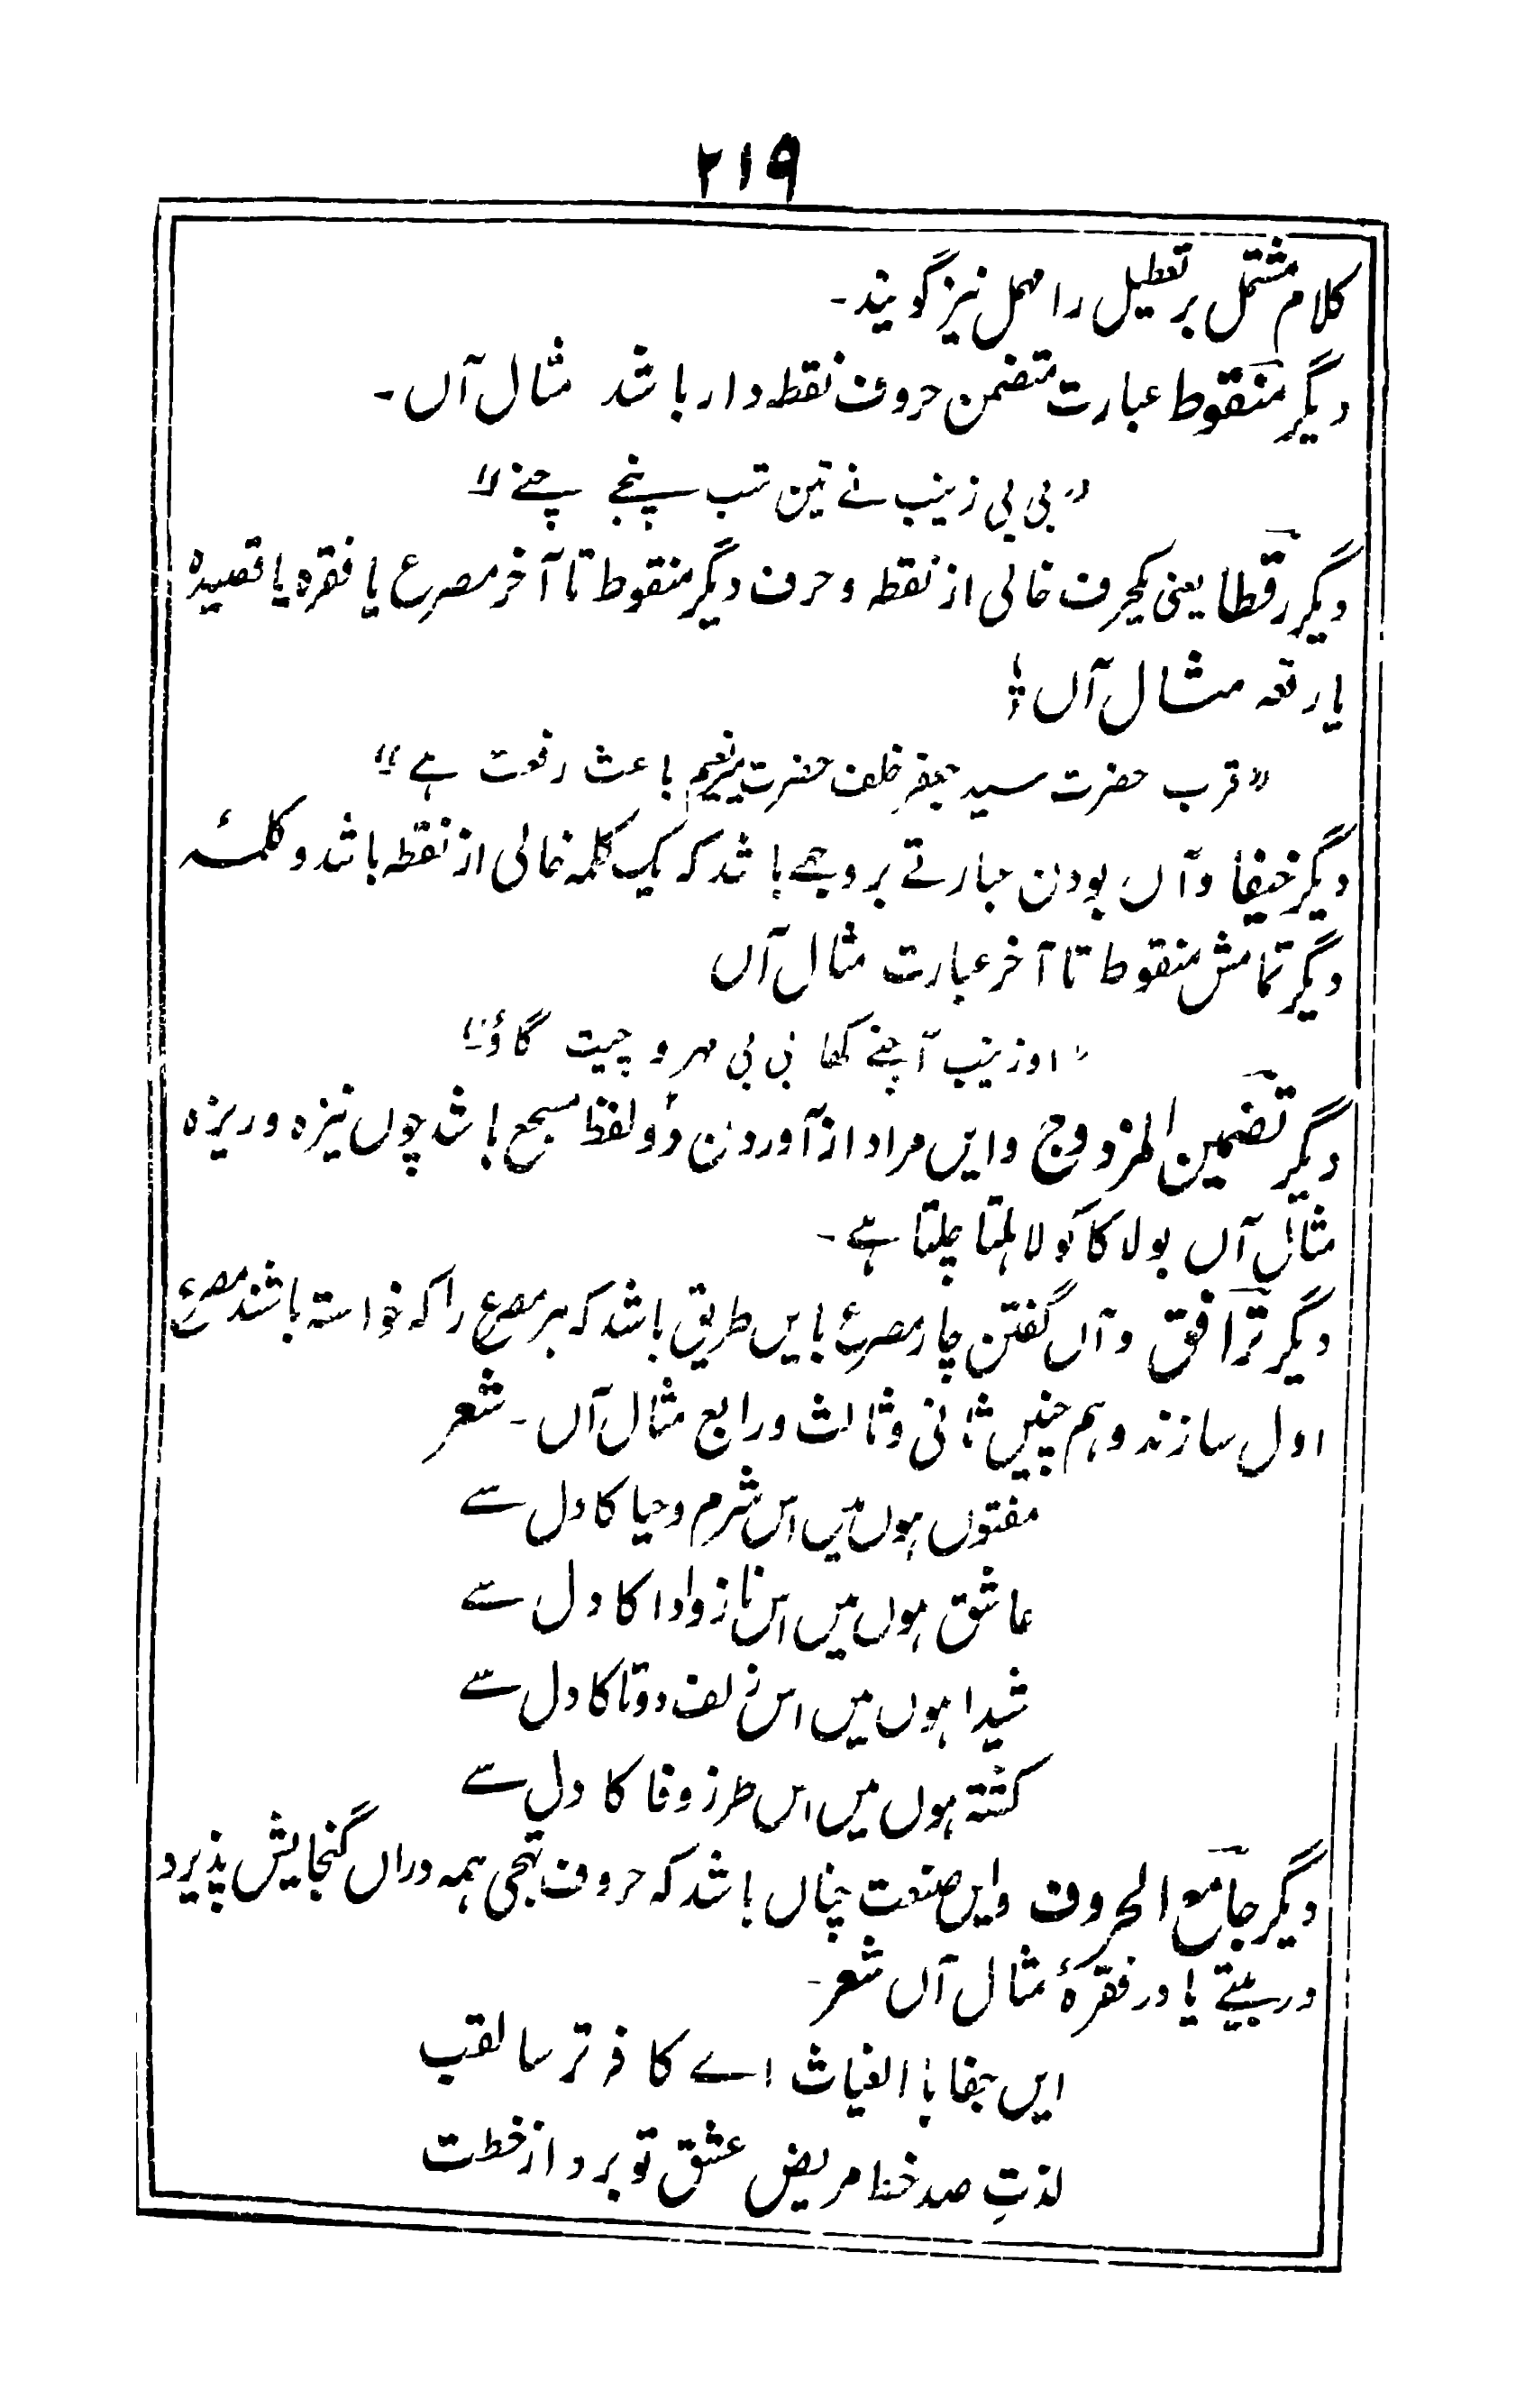 ۲۱۹
کلام مشتمل بر تعطیل را مہمل نیز گویند۔
دیگر منقوط عبارت متضمن حروف نقطہ دار باشد مثال آں۔
"بی بی زینب نے تین تب پنجے چنے"
دیگر رقطا یعنی یکحرف خالی از نقطہ و حرف دیگر منقوط تا آخر مصرع یا فقرہ یا قصیدہ
یا رقعہ مثال آں
"قرب حضرت سید جعفر خلف حضرت میر نعیم باعث رفعت ہے"
دیگر خیفا و آں بودن عبارتے بر وجہے باشد کہ یک کلمہ خالی از نقطہ باشد و کلمۂ
دیگر تمامش منقوط تا آخر عبارت مثال آں
"او زینب آ چنے کھا بی بی مہرو چیت گاؤ"
دیگر تضمین المزدوج و ایں مراد از آوردن دو لفظ مسجع باشد چوں نیزہ و ریزہ
مثال آں بولا کا گولا ہلتا چلتا ہے۔
دیگر ترافق و آں گفتن چار مصرع بایں طریق باشد کہ ہر مصرع را کہ خواستہ باشند مصرع
اول سازند و ہم چنیں ثانی و ثالث و رابع مثال آں۔ شعر
مفتوں ہوں میں اس شرم و حیا کا دل سے
عاشق ہوں میں اس ناز و ادا کا دل سے
شیدا ہوں میں اس زلف دوتا کا دل سے
کشتہ ہوں میں اس طرز وفا کا دل سے
دیگر جامع الحروف و ایں صنعت چناں باشد کہ حروف تہجی ہمہ دراں گنجایش پذیرد
در بیتے یا در فقرۂ مثال آں شعر۔
ایں جفا با الغیاث اے کافر ترسا لقب
لذتِ صد خط مریض عشق تو برد از خطت